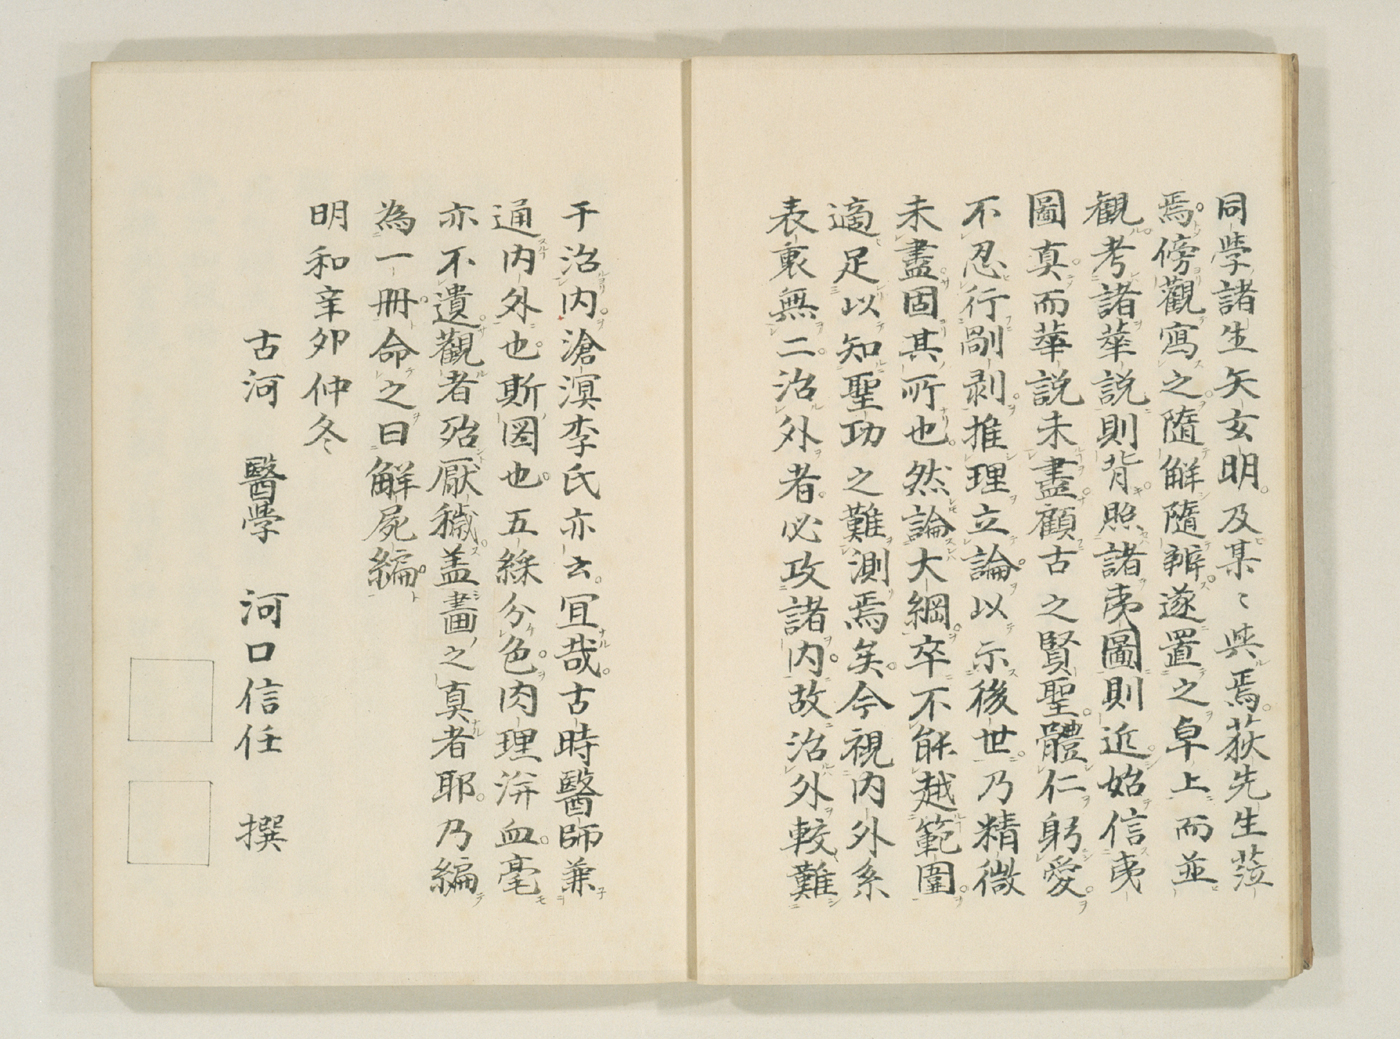 同学諸生矢玄明及某〻與焉荻先生蒞
焉傍觀寫之隨解隨辨遂置之卓上而並
観考諸華説則背照諸夷圖則近始信夷
圖真而華説未盡顧古之賢聖體仁躬愛
不忍行剮剥推理立論以示後世乃精微
未盡固其所也然論大綱卒不能越範圍
適足以知聖功之難測焉矣今視内外系
表裏無二治外者必攻諸内故治外較難
于治内滄溟李氏亦云宜哉古時醫師兼
通内外也斯圖也五綵分色肉理洴血毫
亦不遺觀者殆厭穢盖畵之真者耶乃編
為一冊命之曰解屍編
明和辛卯仲冬
古河　醫学　河口信任　撰